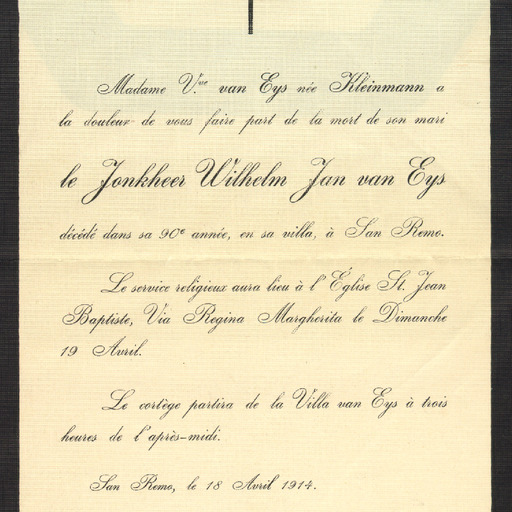 Madame V.ve van Eys née Kleinmann a
la douleur de vous faire part de la mort de son mari
le Jonkheer Wilhelm Jan van Eys
décédé dans sa 90e année, en sa villa, à San Remo.
Le service religieux aura lieu à l'Église St. Jean
Baptiste, Via Regina Margherita le Dimanche
19 Avril.
Le cortège partira de la Villa van Eys à trois
heures de l'après-midi.
San Remo, le 18 Avril 1914.